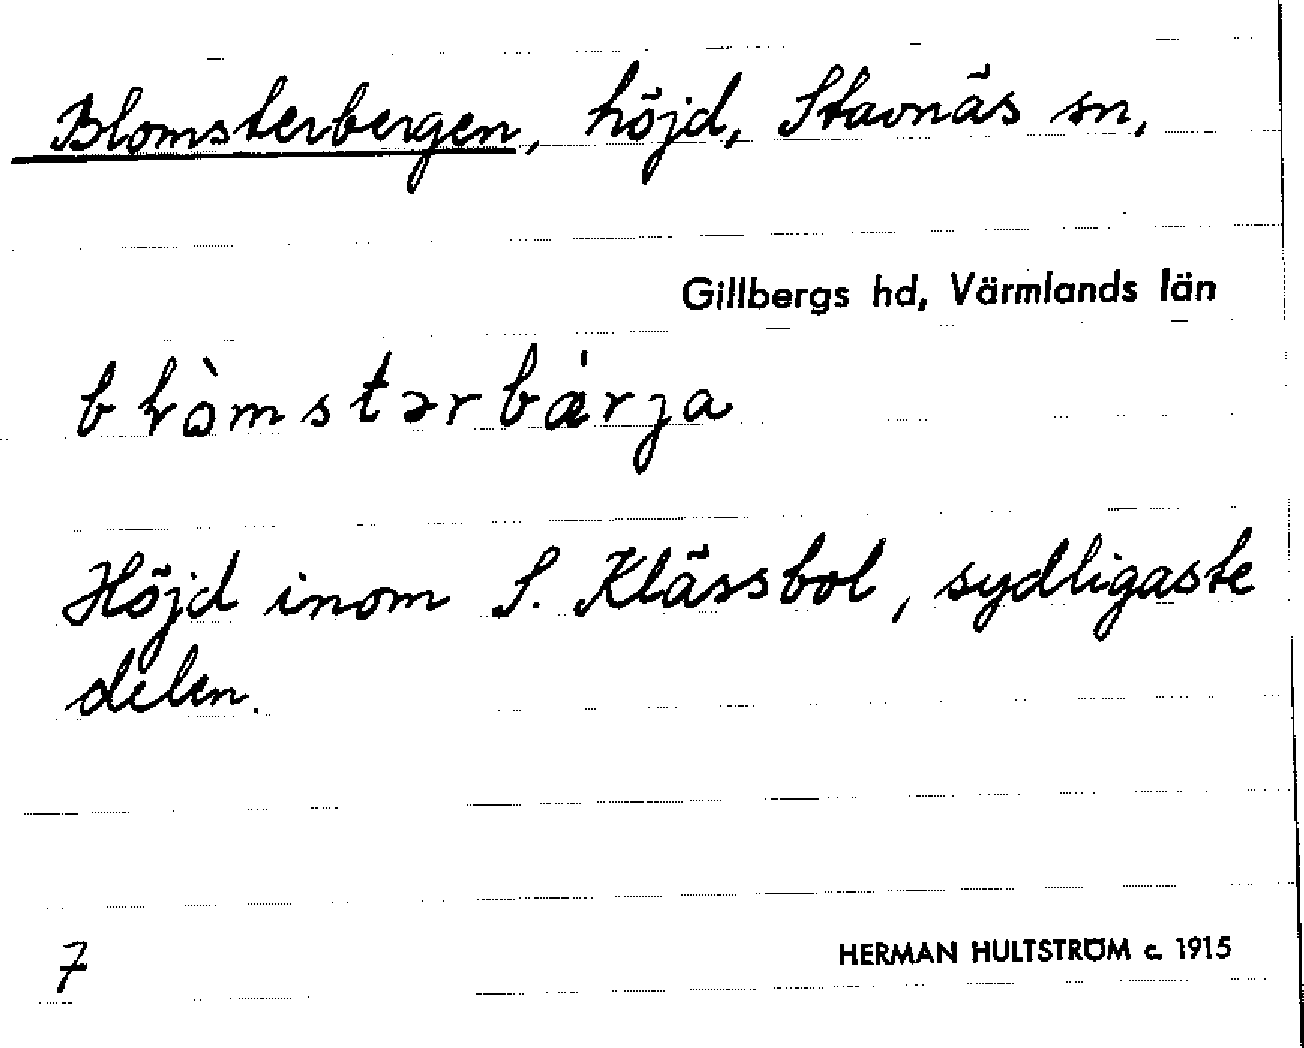 Blomsterbergen, höjd, Stavnäs sn,
Gillbergs hd, Värmlands län
Höjd inom S. Klässbol, sydligaste
delen.
7
HERMAN HULTSTRÖM c. 1915